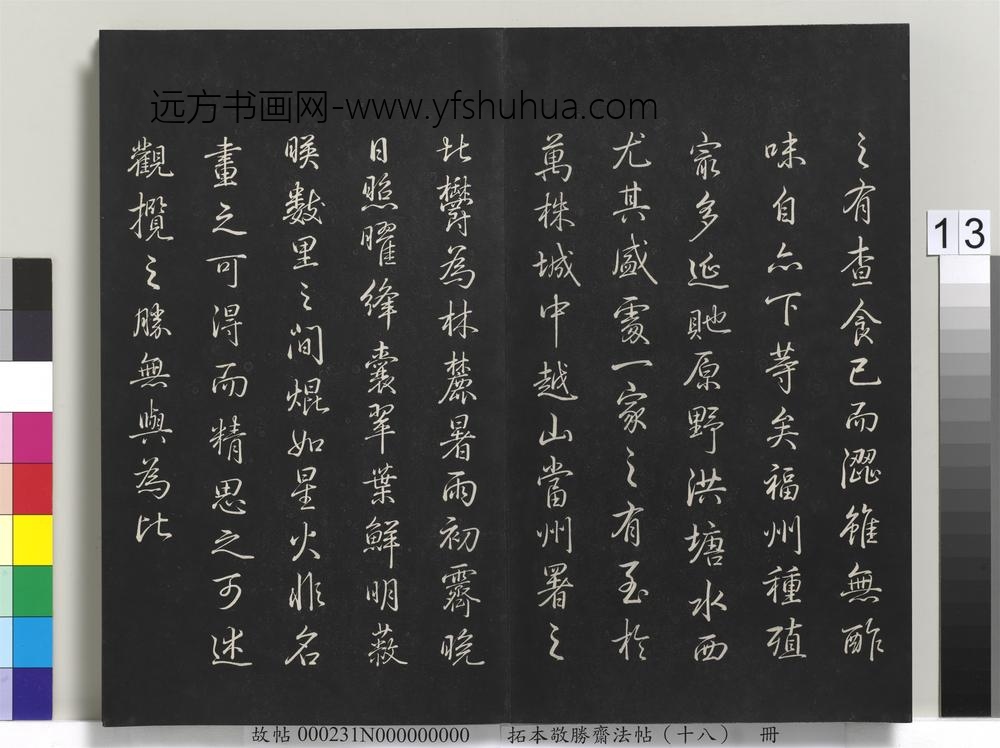 远方书画网-www.yfshuhua.com
之有查食已而澀雖無酢
味自亦下等矣福州種殖
寂多延貤原野洪塘水西
尤其盛處一家之有至於
萬株城中越山當州署之
北欝為林麓暑雨初霽晚
日照曜絳囊翠葉鮮明蔽
暎數里之間焜如星火非名
畫之可得而精思之可述
觀攬之勝無與為比
13
故帖 000231N000000000 拓本敬勝齋法帖（十八） 冊